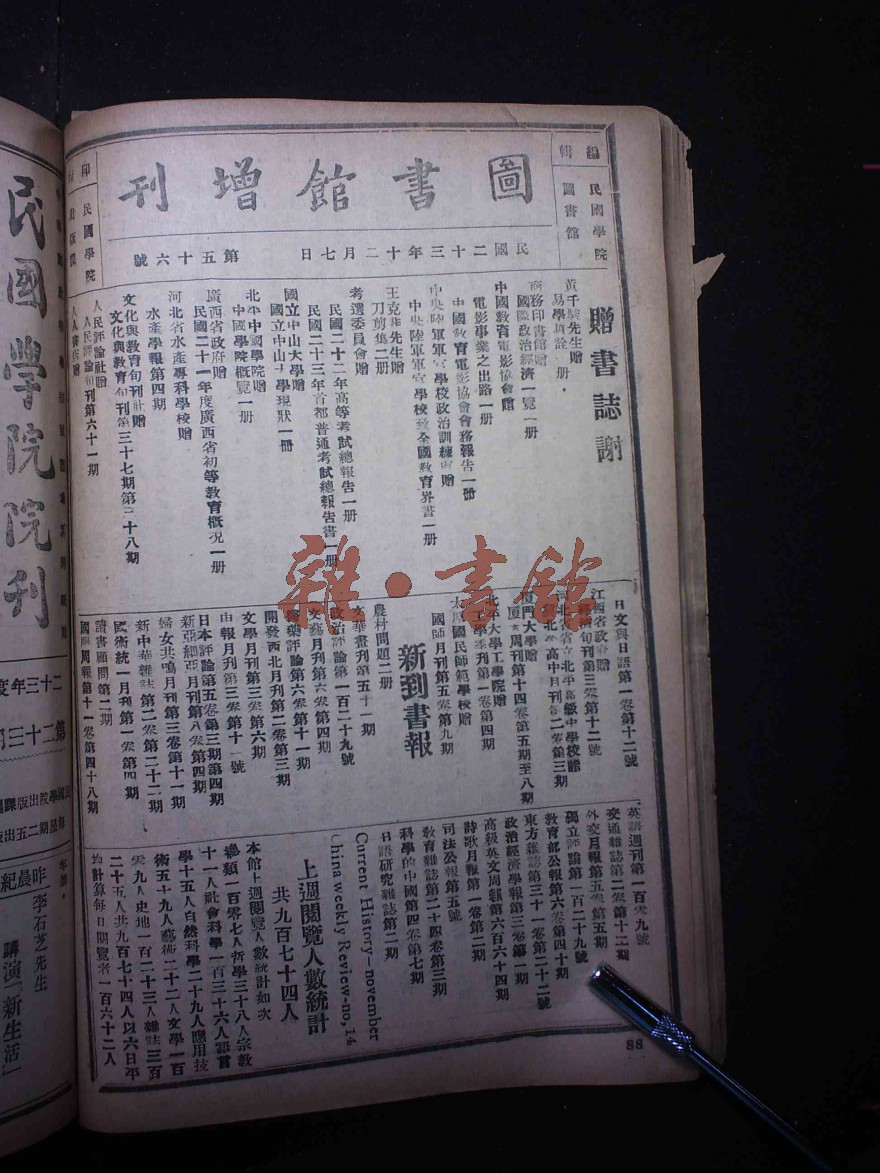 圖書館增刊
編輯
民國學院
圖書館
民國學院
民國二十三年十二月七日
第五十六號
贈書誌謝
黃千先生贈
易學
商務印書館贈
國際政治經濟一覽一册
中國教育電影協會贈
電影事業之出路一册
中國教育電影協會會務報告一册
中央陸軍軍官學校政治訓練處贈
中央陸軍軍官學校致全國教育界書一册
王克先生贈
刀剪集二册
考選委員會贈
民國二十二年高等考試總報告一册
民國二十三年首都普通考試總報告書一册
國立中山大學贈
國立中山大學現狀一册
北平中國學院贈
中國學院概覽一册
廣西省政府贈
民國二十一年度廣西省初等教育概況一册
河北省水產專科學校贈
水產學報第四期
文化與教育旬刊社贈
文化與教育旬刊第三十七期第三十八期
人民評論社贈
人民評論旬刊第六十一期
人人書店贈
日文與日語第一卷第十二號
江西省政府贈
旬刊第三卷第十二號
河北省立北平高級中學校贈
高中月刊第二卷第三期
廈門大學贈
廈大周刊第十四卷第五期至八期
北平大學工學院贈
工學季刊第一卷第四期
太原國民師範學校贈
國師月刊第五卷第九期
新到書報
農村問題二册
文華畫刊第五十一期
政治評論第一百二十九號
文藝月刊第六卷第四期
醫藥評論第六卷第十一期
開發西北月刊第二卷第三期
文學月刊第三卷第六期
申報月刊第三卷第十一號
日本評論第五卷第三期第四期
新亞細亞月刊第八卷第四期
婦女共鳴月刊第三卷第十一期
新中華雜誌第二卷第二十二期
國術統一月刊第一卷第四期
讀書顧問第二期
國聞周報第十一卷第四十八期
英語週刊第一百零九號
交通雜誌第二卷第十二期
外交月報第五卷第五期
獨立評論第一百二十九號
教育部公報第六卷第四十期
東方雜誌第三十一卷第二十二號
政治經濟學報第三卷第一期
高級英文周報第六百六十四期
詩歌月報第一卷第二期
司法公報第五號
教育雜誌第二十四卷第三期
科學的中國第四卷第七期
日語研究雜誌第二期
Current History—november
China weekly Review—no, 14
上週閱覽人數統計
共九百七十四人
本館上週閱覽人數統計如次
總類一百零七人哲學三十八人宗教
十一人社會科學一百三十六人語言
學十五人自然科學二十九人應用技
術五十九人藝術二十二人文學一百
零九人史地一百二十三人雜誌三百
二十五人共九百七十四人以六日平
均計算每日閱覽者一百六十二人
88
民國學院院刊
二十三年度
第二十三期
昨晨紀
李石芝先生
講演「新生活」
雜·書館